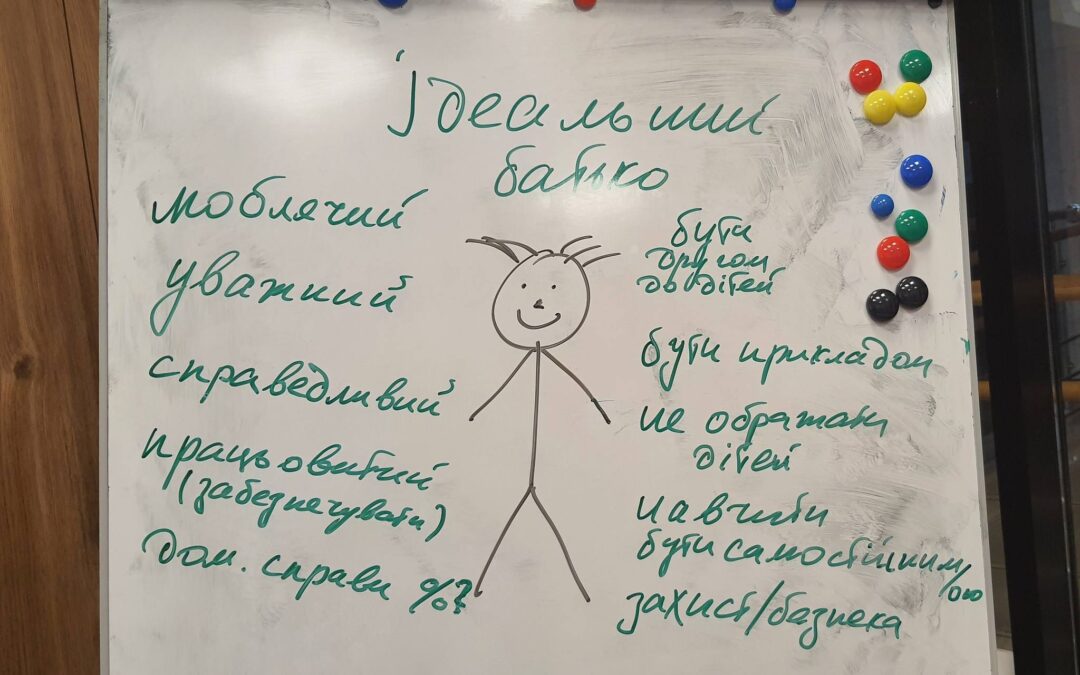 Ідеальний
батько
люблячий
уважний
справедливий
працьовитий
(забезпечувати)
дом. справи %?
бути
другом
до дітей
бути прикладом
не ображати
дітей
навчити
бути самостійним/
/ою
захист/безпека